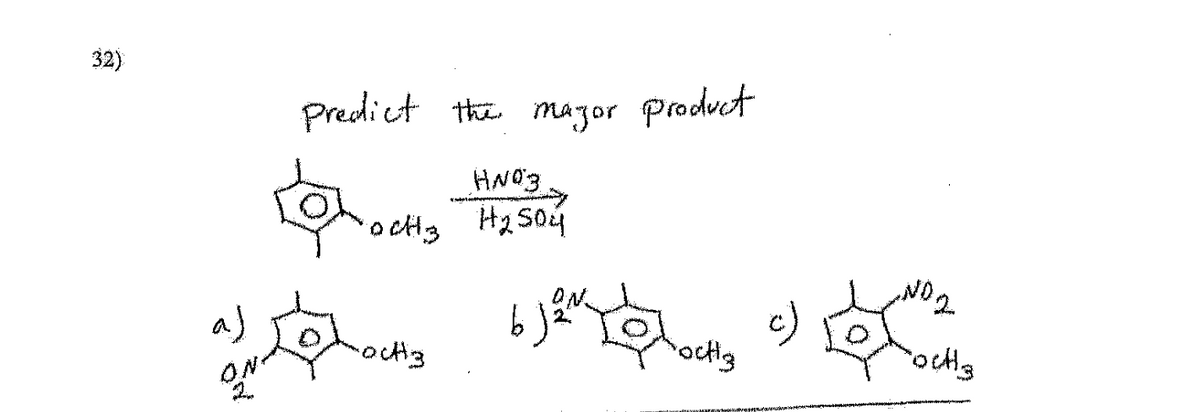 32)
Predict the major product
HNO3
OCH3 H2SO4
a) O2N OCH3 b) O2N OCH3 c) NO2 OCH3